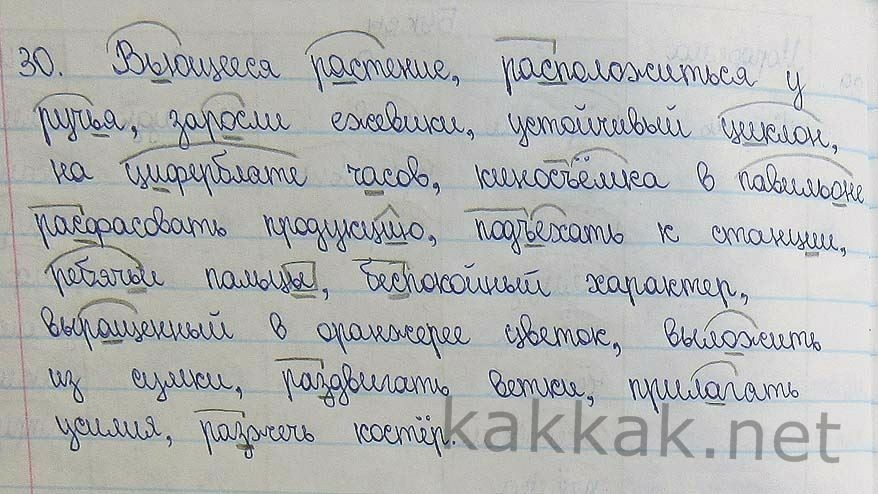 30. Вьющееся растение, расположиться у
ручья, заросли ежевики, устойчивый циклон,
на циферблате часов, киносъёмка в павильоне
расфасовать продукцию, подъехать к станции,
ребячьи пальцы, беспокойный характер,
выращенный в оранжерее цветок, выложить
из сумки, раздвигать ветки, прилагать
усилия, разжечь костёр.
kakkak.net